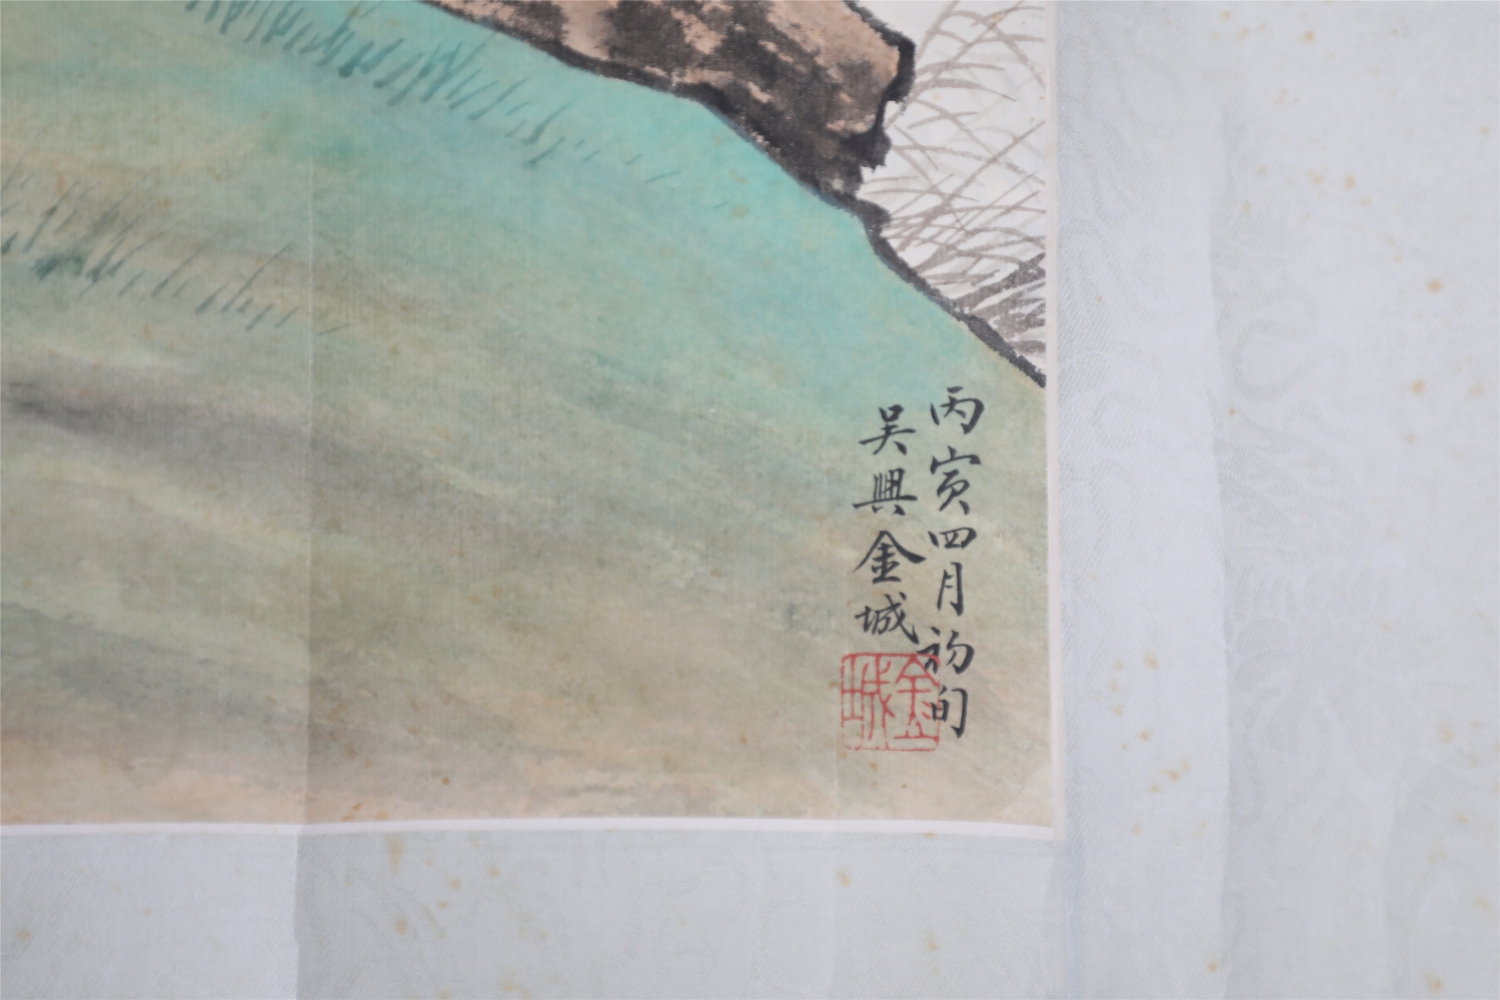 丙寅四月初旬
吳興金城
金城